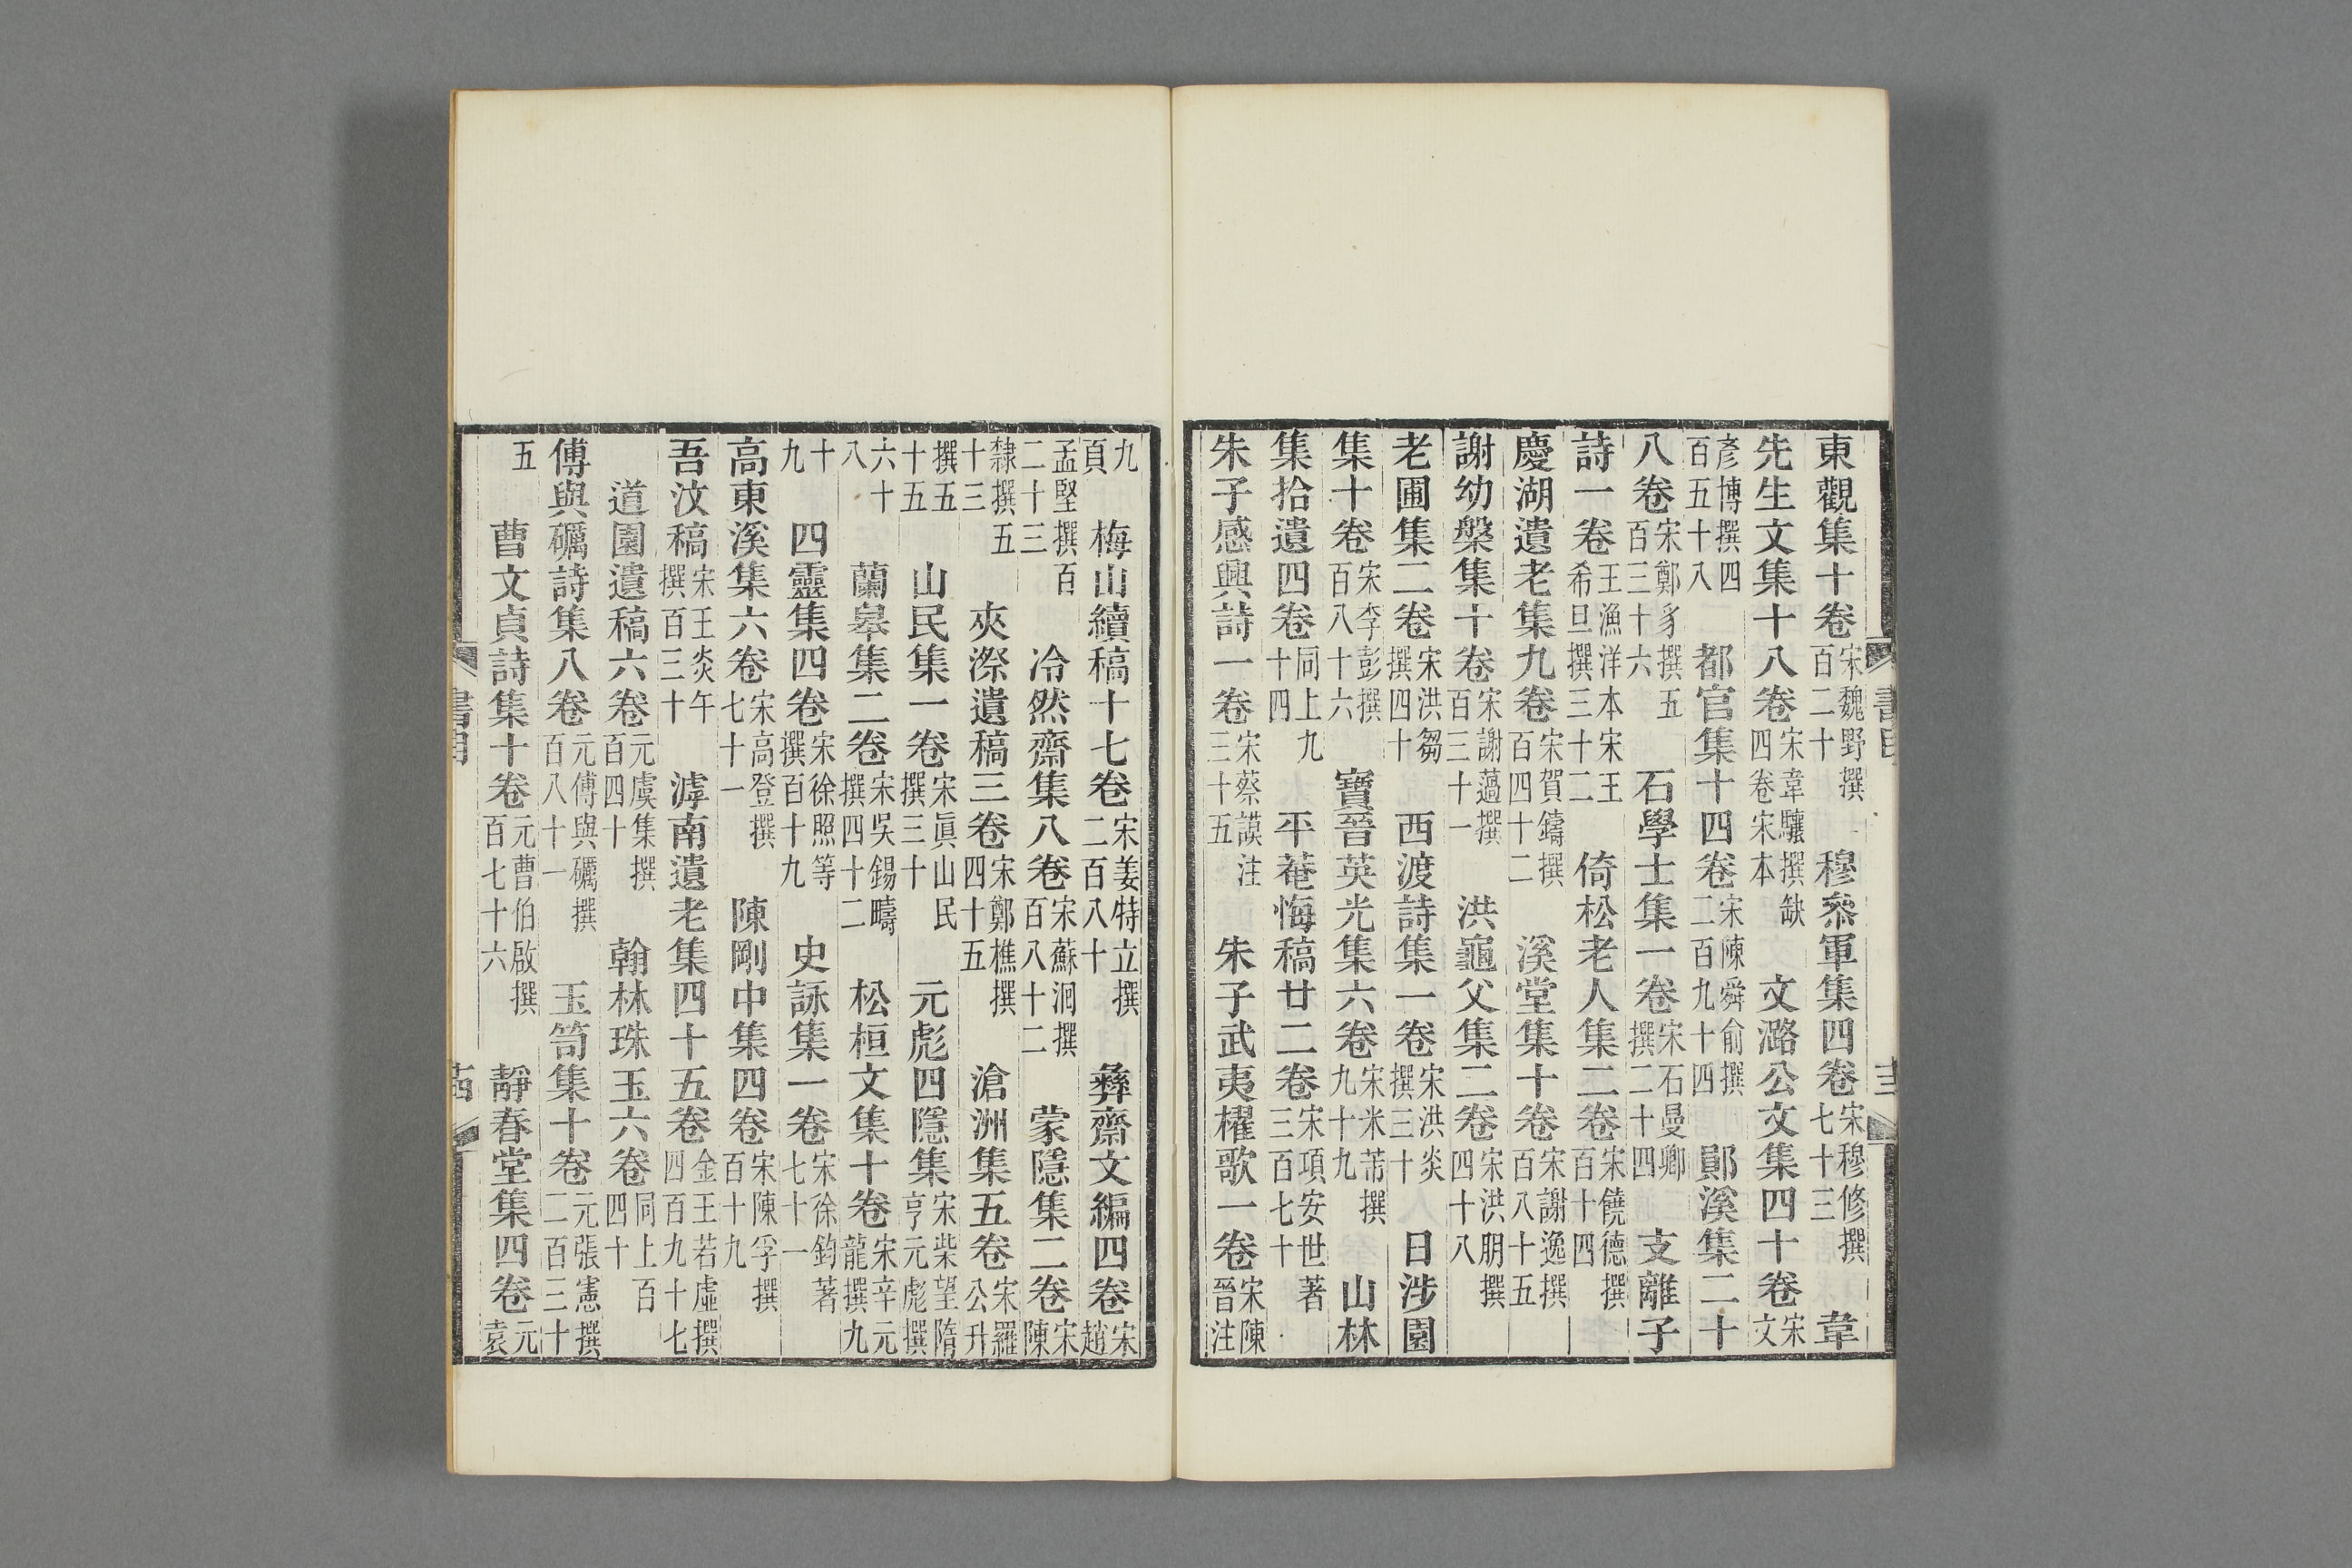 東觀集十卷宋魏野撰百二十 穆叅軍集四卷宋穆修撰七十三 韋
先生文集十八卷宋韋驤撰缺四卷宋本 文潞公文集四十卷宋文
彥博撰四百五十八 都官集十四卷宋陳舜俞撰二百九十四 鄖溪集二十
八卷宋鄭豸撰五百三十六 石學士集一卷宋石曼卿撰二十四 支離子
詩一卷王漁洋本宋王希旦撰三十二 倚松老人集二卷宋饒德撰百十四
慶湖遺老集九卷宋賀鑄撰百四十二 溪堂集十卷宋謝逸撰百八十五
謝幼槃集十卷宋謝薖撰百三十一 洪龜父集二卷宋洪朋撰四十八
老圃集二卷宋洪芻撰四十 西渡詩集一卷宋洪炎撰三十 日涉園
集十卷宋李彭撰百八十六 寶晉英光集六卷宋米芾撰九十九 山林
集拾遺四卷同上九十四 平菴悔稿廿二卷宋項安世著三百七十
朱子感興詩一卷宋蔡謨注三十五 朱子武夷櫂歌一卷宋陳晉注
九頁 梅山續稿十七卷宋姜特立撰二百八十 彝齋文編四卷宋趙
孟堅撰百二十三 冷然齋集八卷宋蘇泂撰百八十二 蒙隱集二卷宋陳
隸撰五十三 夾漈遺稿三卷宋鄭樵撰四十五 滄洲集五卷宋羅公升
撰五十五 山民集一卷宋眞山民撰三十 元彪四隱集宋柴望隋亨元彪撰
六十八 蘭皋集二卷宋吳錫疇撰四十二 松桓文集十卷宋辛元龍撰九
十九 四靈集四卷宋徐照等撰百十九 史詠集一卷宋徐鈞著七十一
高東溪集六卷宋高登撰七十一 陳剛中集四卷宋陳孚撰百十九
吾汶稿宋王炎午撰百三十 滹南遺老集四十五卷金王若虛撰四百九十七
道園遺稿六卷元虞集撰百四十 翰林珠玉六卷同上百四十
傅與礪詩集八卷元傅與礪撰百八十一 玉笥集十卷元張憲撰二百三十
五 曹文貞詩集十卷元曹伯啟撰百七十六 靜春堂集四卷元袁